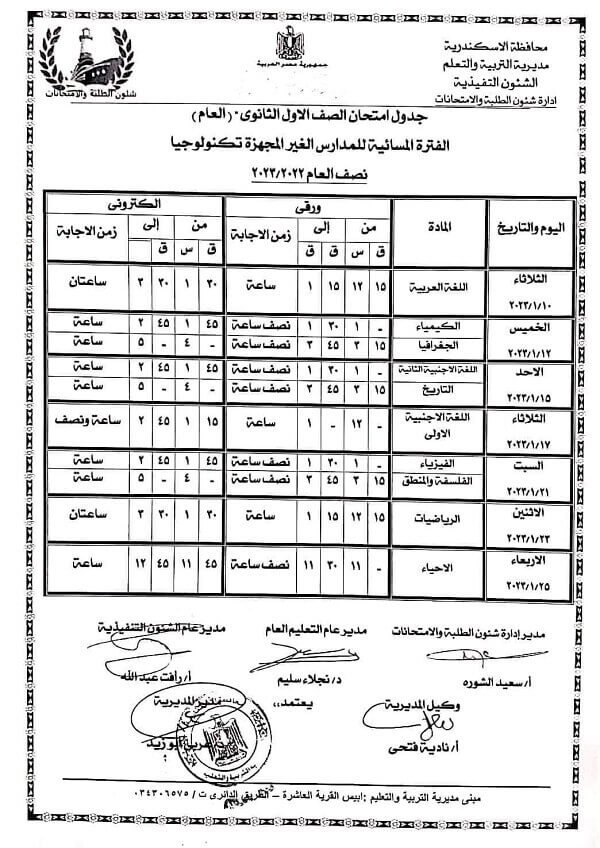 محافظة الاسكندرية
مديرية التربية والتعلم
الشئون التفيذية
ادارة شئون الطلبة والامتحانات
جمهورية مصر العربية
شئون الطلبة والامتحانات
جدول امتحان الصف الاول الثانوى -(العام)
الفترة المسائية للمدارس الغير المجهزة تكنولوجيا
نصف العام ٢٠٢٣/٢٠٢٢
اليوم والتاريخ المادة ورقى الكترونى
من إلى زمن الاجابة من إلى زمن الاجابة
ق س ق ق ق س ق
الثلاثاء ٢٠٢٣/١/١٠ اللغة العربية ١٥ ١٢ ١٥ ١ ساعة ٣٠ ١ ٣٠ ٣ ساعتان
الخميس ٢٠٢٣/١/١٢ الكيمياء - ١ ٣٠ ١ نصف ساعة ٤٥ ١ ٤٥ ٢ ساعة
الجغرافيا ١٥ ٣ ٤٥ ٣ نصف ساعة - ٤ - ٥ ساعة
الاحد ٢٠٢٣/١/١٥ اللغة الاجنبية الثانية - ١ ٣٠ ١ نصف ساعة ٤٥ ١ ٤٥ ٢ ساعة
التاريخ ١٥ ٣ ٤٥ ٣ نصف ساعة - ٤ - ٥ ساعة
الثلاثاء ٢٠٢٣/١/١٧ اللغة الاجنبية الاولى - ١٢ - ١ ساعة ١٥ ١ ٤٥ ٢ ساعة ونصف
السبت ٢٠٢٣/١/٢١ الفيزياء - ١ ٣٠ ١ نصف ساعة ٤٥ ١ ٤٥ ٢ ساعة
الفلسفة والمنطق ١٥ ٣ ٤٥ ٣ نصف ساعة - ٤ - ٥ ساعة
الاثنين ٢٠٢٣/١/٢٣ الرياضيات ١٥ ١٢ ١٥ ١ ساعة ٣٠ ١ ٣٠ ٣ ساعتان
الاربعاء ٢٠٢٣/١/٢٥ الاحياء - ١١ ٣٠ ١١ نصف ساعة ٤٥ ١١ ٤٥ ١٢ ساعة
مدير إدارة شئون الطلبة والامتحانات مدير عام التعليم العام مدير عام الشئون التنفيذية
أ/ سعيد الشوره د/ نجلاء سليم أ/ رافت عبد الله
وكيل المديرية يعتمد،، مدير المديرية
أ/ نادية فتحى عربى ابوزيد
مبنى مديرية التربية والتعليم : ابيس القرية العاشرة - الطريق الدائرى ت / ٠٣٤٣٠٦٥٧٥